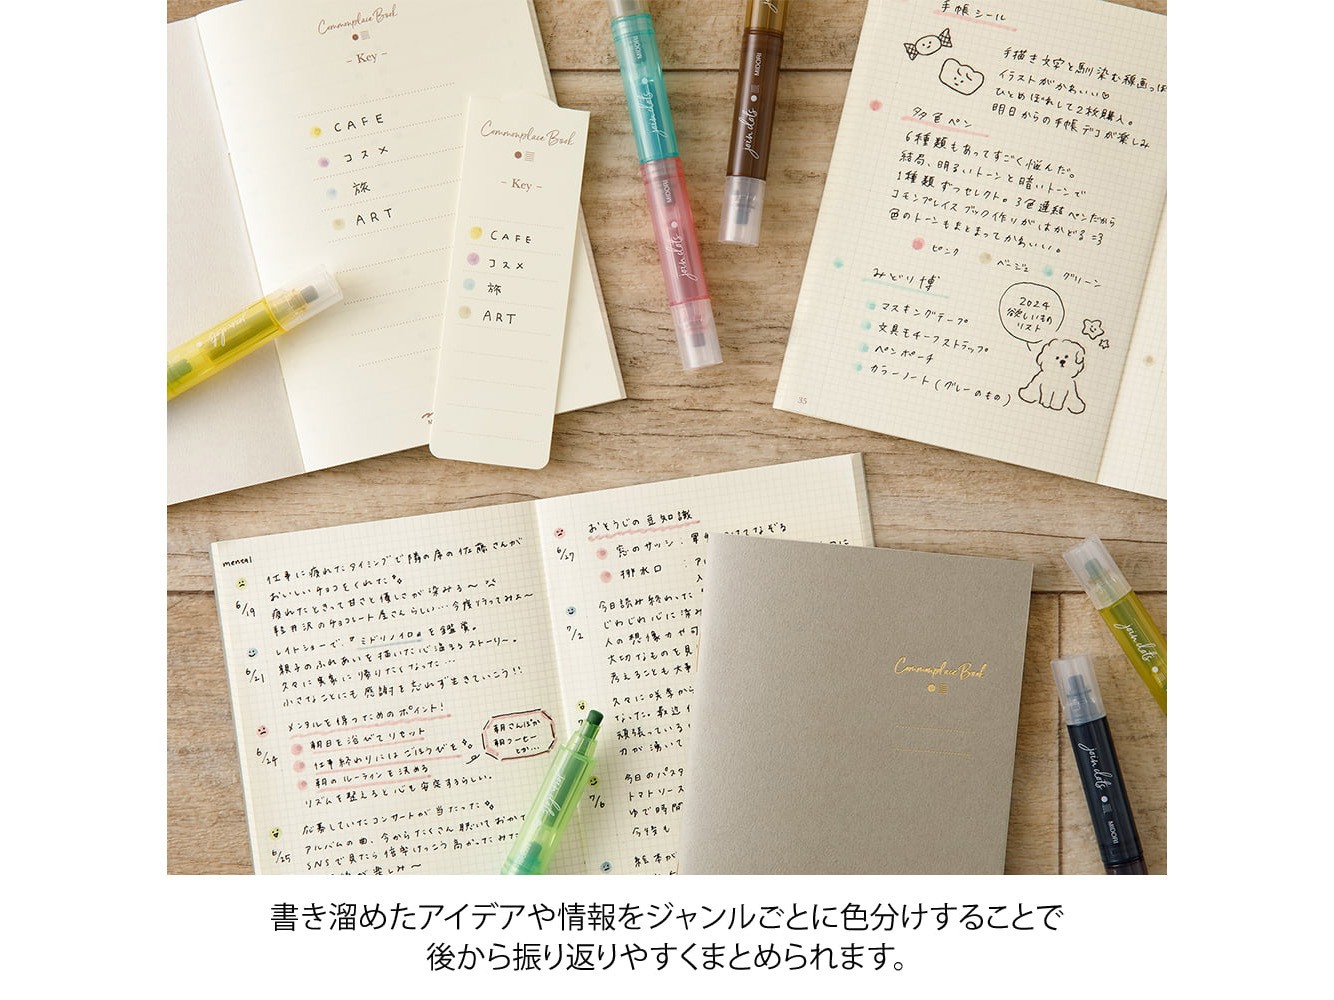 Commonplace Book
– Key –
CAFE
コスメ
旅
ART
Commonplace Book
– Key –
CAFE
コスメ
旅
ART
join dots
MIDORI
join dots
MIDORI
join dots
MIDORI
手帳シール
手描き文字と馴染む線画っぽ
イラストがかわいい♡
ひとめぼれして2枚購入。
明日からの手帳デコが楽しみ
多色ペン
6種類もあってすごく悩んだ。
結局、明るいトーンと暗いトーンで
1種類ずつセレクト。3色連結ペンだから
コモンプレイスブック作りがはかどる
色のトーンもまとまってかわいい。
ピンク
ベージュ
グリーン
みどり博
マスキングテープ
文具モチーフストラップ
ペンポーチ
カラーノート(グレーのもの)
2024
欲しいもの
リスト
35
mental
6/19
仕事に疲れたタイミングで隣の席の佐藤さんが
おいしいチョコをくれた
疲れたときって甘さと優しさが染みる〜
軽井沢のチョコレート屋さんらしい…今度行ってみよ〜
6/21
レイトショーで、『ミドリノイロ』を鑑賞。
親子のふれあいを描いた心温まるストーリー。
久々に実家に帰りたくなった…
小さなことにも感謝を忘れず生きていこう!!
6/24
メンタルを保つためのポイント!
朝日を浴びてリセット
仕事終わりにはごほうびを
朝のルーティンを決める
リズムを整えると心も安定するらしい。
朝さんぽか
朝コーヒー
とか…
6/25
応募していたコンサートが当たった
アルバムの曲、今からたくさん聴いておかな
SNSで見たら倍率けっこう高かったみた
おそうじの豆知識
6/27
窓のサッシ:
排水口:
7/2
今日読み終わった
じわじわ心に染み
人の想像力や可
大切なものを見
考えることも大事
久々に咲季から
なった。最近
頑張っている
力が湧いて
7/6
今日のパスタ
トマトソース
ゆで時間
今時も
絵本が
Commonplace Book
join dots
join dots
join dots
MIDORI
書き溜めたアイデアや情報をジャンルごとに色分けすることで
後から振り返りやすくまとめられます。